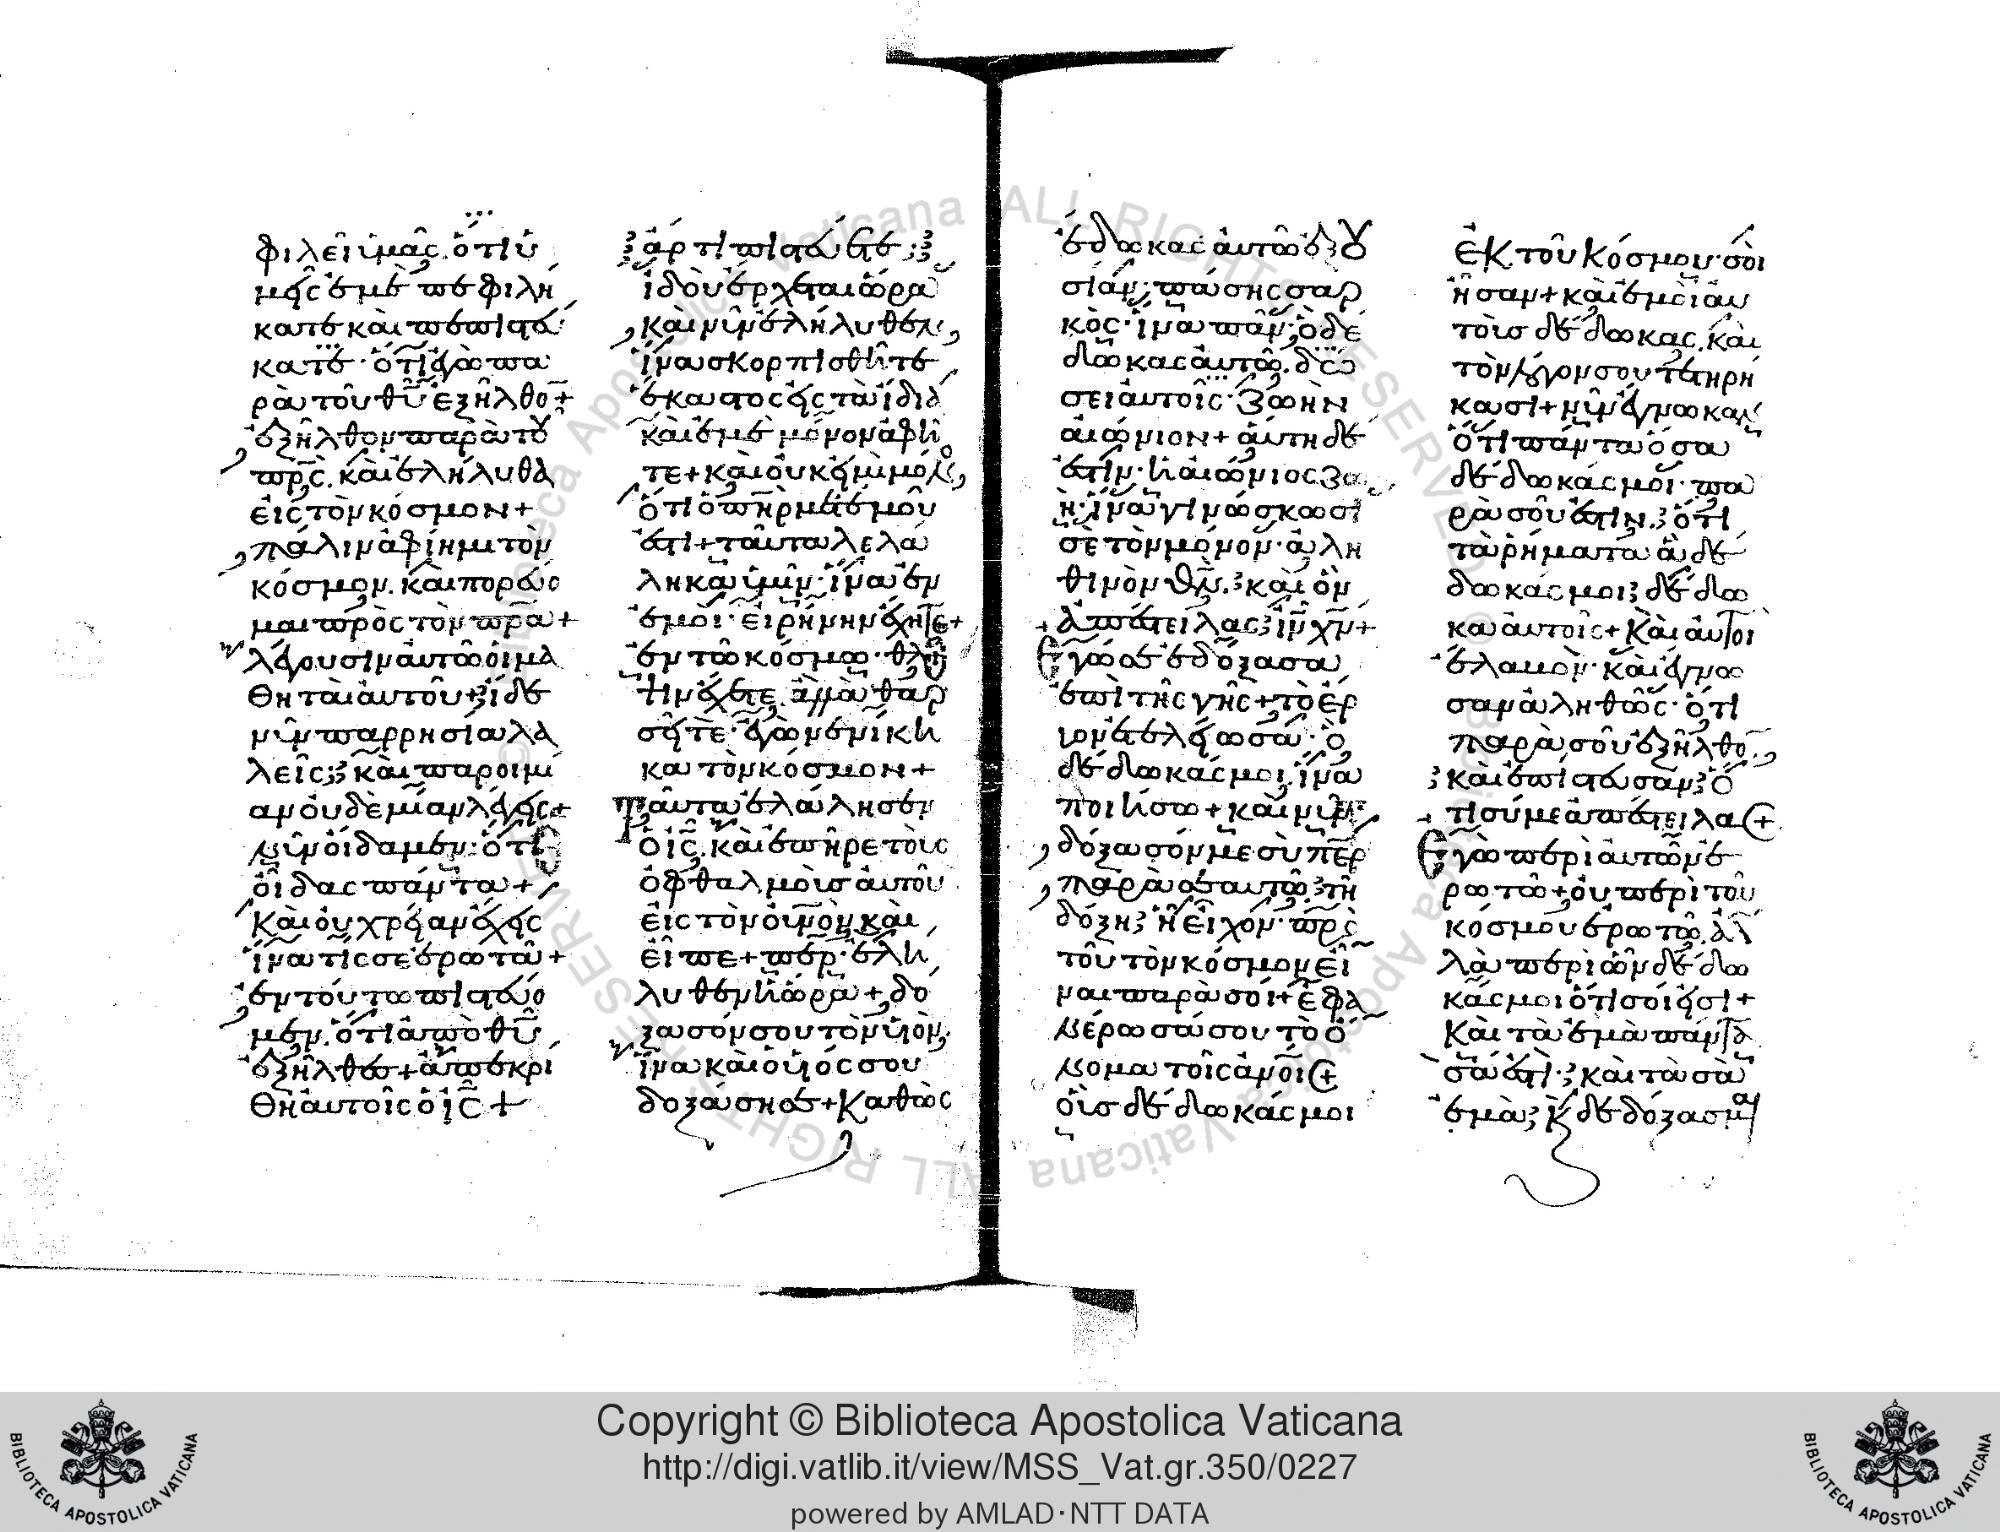 φιλεῖ ὑμᾶς. ὅτι ὑ
μεῖς ἐμὲ πεφιλή
κατε καὶ πεπιστεύ
κατε· ὅτι ἐγὼ πα
ρὰ τοῦ θῦ ἐξῆλθον+
ἐξῆλθον παρὰ τοῦ
πρς. καὶ ἐλήλυθα
εἰς τὸν κόσμον+
πάλιν ἀφίημι τὸν
κόσμον. καὶ πορεύο
μαι πρὸς τὸν πρα+
λέγουσιν αὐτῶ οἱ μα
θηταὶ αὐτοῦ+ ἴδε
νῦν παρρησία λα
λεῖς; καὶ παροιμί
αν οὐδεμίαν λέγεις+
νῦν οἴδαμεν· ὅτι
οἶδας πάντα+
Καὶ οὐ χρείαν ἔχεις
ἵνα τίς σε ἐρωτᾶ+
ἐν τούτω πιστεύο
μεν. ὅτι ἀπὸ θῦ
ἐξῆλθες+ ἀπεκρί
θη αὐτοῖς ὁ ις+
ἄρτι πιστεύετε;
ἰδοὺ ἔρχεται ὥρα
καὶ νῦν ἐλήλυθεν,
ἵνα σκορπισθῆτε
ἕκαστος εἰς τὰ ἴδια
καὶ ἐμὲ μόνον ἀφῆ
τε+ καὶ οὐκ εἰμὶ μόνος,
ὅτι ὁ πηρ μετ' ἐμοῦ
ἐστι+ ταῦτα λελά
ληκα ὑμῖν· ἵνα ἐν
ἐμοὶ· εἰρήνην ἔχητε+
ἐν τῶ κόσμω· θλί
ψιν ἔχετε. ἀλλὰ θαρ
σεῖτε· ἐγὼ νενίκη
κα τὸν κόσμον+
Ταῦτα ἐλάλησεν
ὁ ις. καὶ ἐπῆρε τοὺς
ὀφθαλμοὺς αὐτοῦ
εἰς τὸν οὐνὸν καὶ
εἶπε+ περ· ἐλή
λυθεν ἡ ὥρα+ δό
ξασόν σου τὸν υἱὸν,
ἵνα καὶ ὁ υἱός σου
δοξάση σε+ Καθὼς
ἔδωκας αὐτῶ ἐξου
σίαν· πάσης σαρ
κὸς· ἵνα πᾶν· ὃ δέ
δωκας αὐτῶ. δώ
σει αὐτοῖς· ζωὴν
αἰώνιον+ αὕτη δέ
ἐστιν· ἡ αἰώνιος ζω
ὴ· ἵνα γινώσκωσί
σε τὸν μόνον· ἀλη
θινὸν θν. καὶ ὃν
ἀπέστειλας ιν χν+
Ἐγώ σε ἐδόξασα
ἐπὶ τῆς γῆς+ τὸ ἔρ
γον ἐτελείωσα· ὃ
δέδωκάς μοι. ἵνα
ποιήσω+ καὶ νῦν
δόξασόν με σὺ περ
παρὰ σεαυτῶ· τῆ
δόξη· ἧ εἶχον· πρὸ
τοῦ τὸν κόσμον εἶ
ναι παρὰ σοί+ ἐφα
νέρωσά σου τὸ ὄ
νομα τοῖς ἀνοις+
οὓς δέδωκάς μοι
ἐκ τοῦ κόσμου· σοὶ
ἦσαν+ καὶ ἐμοὶ αὐ
τοὺς δέδωκας. καὶ
τὸν λόγον σου τετηρή
κασι+ νῦν ἔγνωκαν
ὅτι πάντα ὅσα
δέδωκάς μοι· πα
ρὰ σοῦ ἐστιν. ὅτι
τὰ ῥήματα ἃ δέ
δωκάς μοι· δέδω
κα αὐτοῖς+ Καὶ αὐτοὶ
ἔλαβον· καὶ ἔγνω
σαν ἀληθῶς· ὅτι
παρὰ σοῦ ἐξῆλθον,
καὶ ἐπίστευσαν· ὅ
τι σύ με ἀπέστειλας+
Ἐγὼ περὶ αὐτῶν ἐ
ρωτῶ+ οὐ περὶ τοῦ
κόσμου ἐρωτῶ. ἀλ
λὰ περὶ ὧν δέδω
κάς μοι ὅτι σοί εἰσι+
Καὶ τὰ ἐμὰ πάντα
σά ἐστι· καὶ τὰ σὰ
ἐμὰ· κ δεδόξασμαι
Copyright © Biblioteca Apostolica Vaticana
http://digi.vatlib.it/view/MSS_Vat.gr.350/0227
powered by AMLAD·NTT DATA
BIBLIOTECA APOSTOLICA VATICANA
BIBLIOTECA APOSTOLICA VATICANA